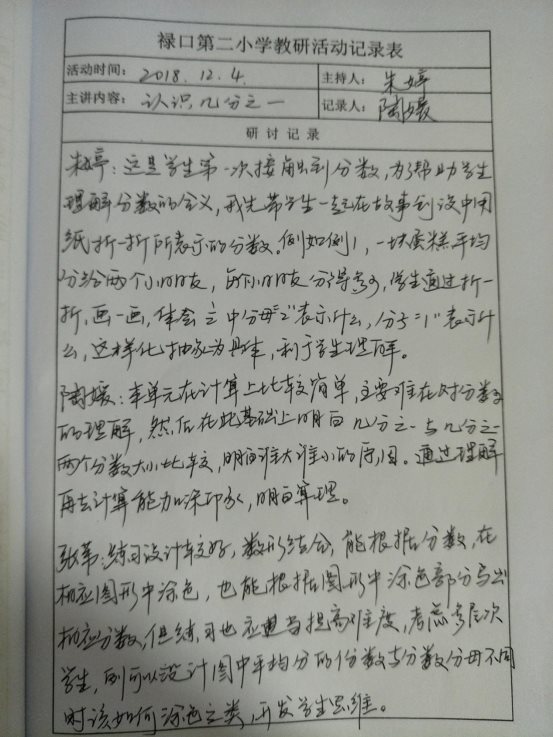 禄口第二小学教研活动记录表
活动时间： 2018.12.4. 主持人： 朱婷
主讲内容： 认识几分之一 记录人： 陶媛
研讨记录
朱婷：这是学生第一次接触到分数，为了帮助学生
理解分数的含义，我先带学生一起在故事创设中用
纸折一折所表示的分数。例如例1，一块蛋糕平均
分给两个小朋友，每个小朋友分得多少，学生通过折一
折，画一画，体会 中分母"2"表示什么，分子"1"表示什
么，这样化抽象为具体，利于学生理解。
陶媛：本单元在计算上比较简单，主要难在对分数
的理解，然后在此基础上明白几分之一与几分之一
两个分数大小比较，明白谁大谁小的原因。通过理解
再去计算能加深印象，明白算理。
张 ：练习设计较好，数形结合，能根据分数，在
相应图形中涂色，也能根据图形中涂色部分写出
相应分数，但练习也应 提高难度，考虑多层次
学生，则可以设计图中平均分的份数与分数分母不同
时该如何涂色之类，开发学生思维。